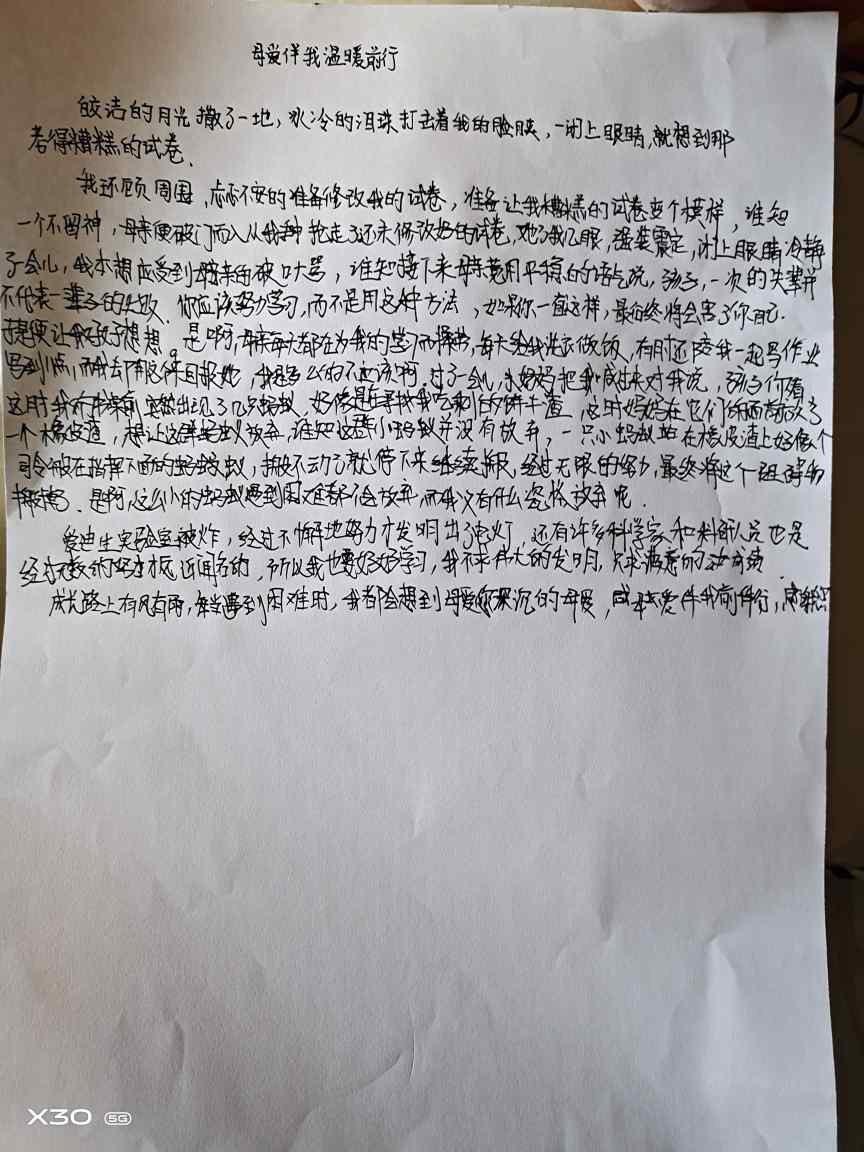 母爱伴我温暖前行
皎洁的月光撒了一地，冰冷的泪珠打击着我的脸颊，一闭上眼睛，就想到那
考得糟糕的试卷.
我环顾周围，忐忑不安的准备修改我的试卷，准备让我糟糕的试卷变个模样，谁知
一个不留神，母亲便破门而入从我手抢走了还未修改好的试卷，她了我几眼，强装震定，闭上眼睛冷静
了会儿，我本想应受到母亲的破口大骂，谁知接下来母亲竟用平稳的语气说，孩子，一次的失辈并
不代表一辈子的失败.你应该努力学习，而不是用这种方法，如果你一直这样，最后终将会害了你自己.
便让我好好想想。是啊，母亲每天都在为我的学习而操劳，每天给我洗衣做饭，有时还陪我一起写作业
写到点，而我却用这样回报她，我是多么的不应该啊.过了一会儿，妈妈把我喊过来对我说，孩子你看
这时我桌前突然出现了几只蚂蚁，好像是在寻找我吃剩的饼干渣，这时妈妈在它们的面前放了
一个橡皮渣，想让这群蚂蚁放弃，谁知这群小蚂蚁并没有放弃，一只小蚂蚁站在橡皮渣上好像个
司令般在指挥下面的蚂蚁，搬不动了就停下来继续搬，经过无限的努力，最终将这个阻碍物
搬掉了.是啊，这么小的蚂蚁遇到困难都不会放弃，而我又有什么资格放弃呢.
爱迪生实验室被炸，经过不懈地努力才发明出了电灯，还有许多科学家和科研人员也是
经过无数的努力才闻名的，所以我也要好好学习，我不求伟大的发明，只求满意的成绩.
成长路上有风有雨，每当遇到困难时，我都会想到母爱深沉的母爱，母爱伴我前行，
X30 5G